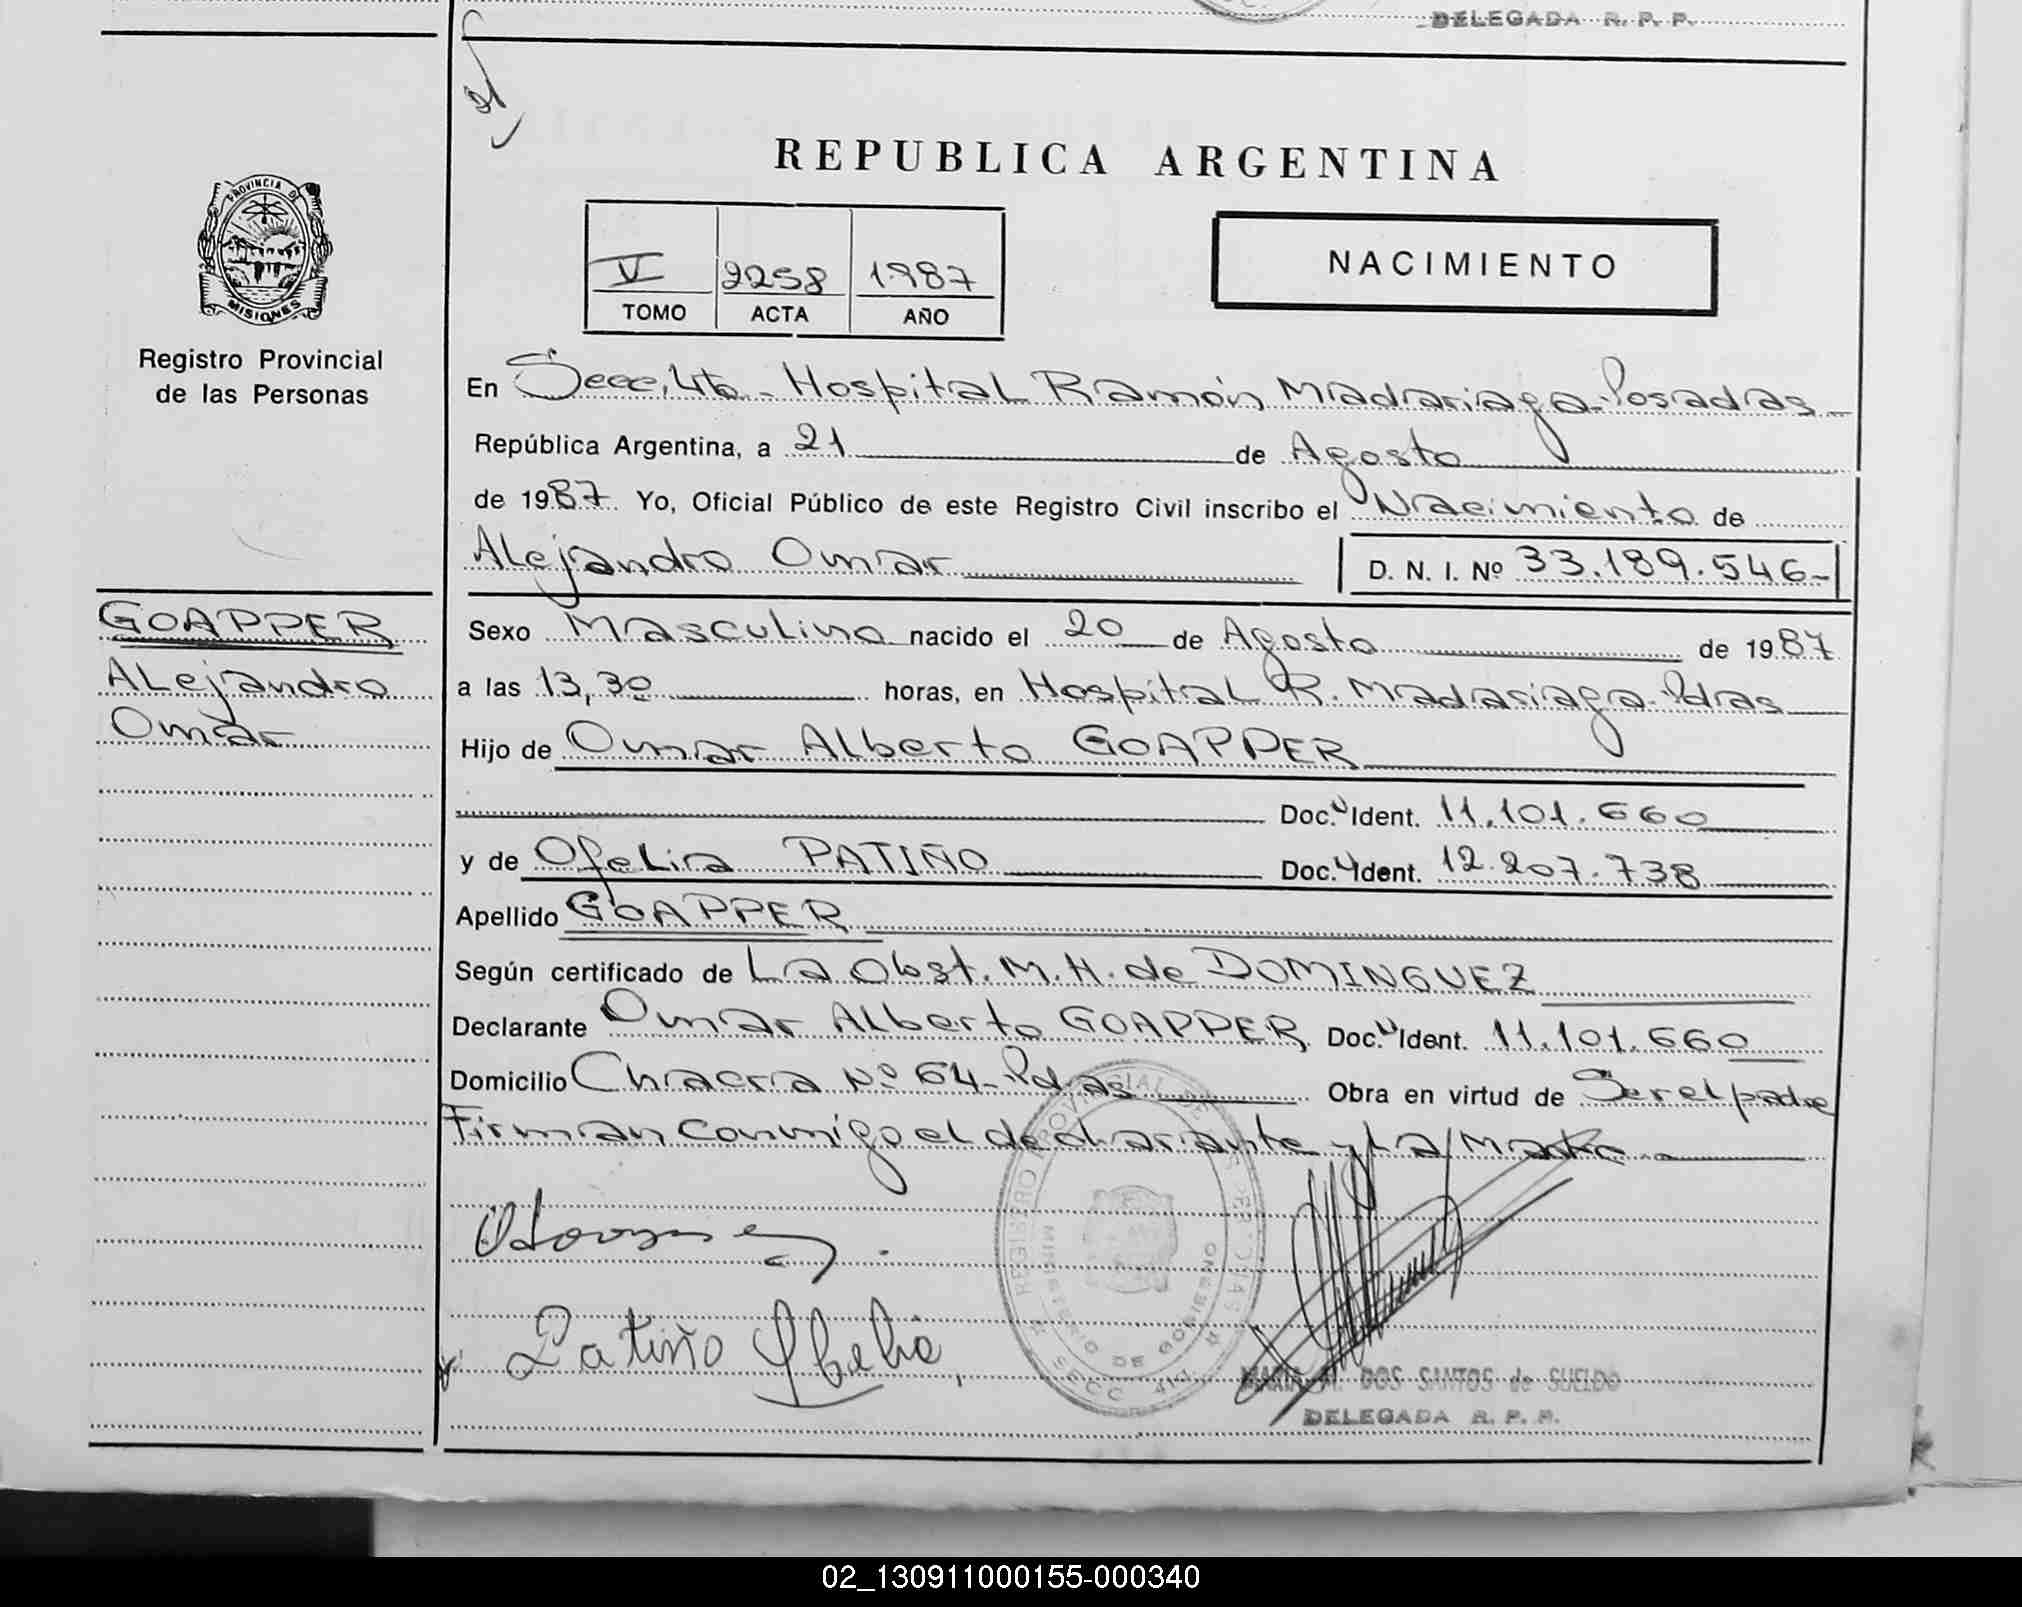 DELEGADA R. P. P.
REPUBLICA ARGENTINA
PROVINCIA DE
MISIONES
Registro Provincial
de las Personas
V 2258 1987
TOMO ACTA AÑO
NACIMIENTO
En Secc. 4to - Hospital Ramón Madariaga - Posadas
República Argentina, a 21 de Agosto
de 1987 Yo, Oficial Público de este Registro Civil inscribo el Nacimiento de
Alejandro Omar D. N. I. Nº 33.189.546-
GOAPPER
Alejandro
Omar
Sexo Masculino nacido el 20 de Agosto de 1987
a las 13,30 horas, en Hospital R. Madariaga - Pdas
Hijo de Omar Alberto GOAPPER
Doc. Ident. 11.101.660
y de Ofelia PATIÑO Doc. Ident. 12.207.738
Apellido GOAPPER
Según certificado de La Obst. M. H. de DOMINGUEZ
Declarante Omar Alberto GOAPPER Doc. Ident. 11.101.660
Domicilio Chacra Nº 64 - Pdas Obra en virtud de Ser el padre
Firman conmigo el declarante y La Madre
REGISTRO PROVINCIAL DE LAS PERSONAS
MINISTERIO DE GOBIERNO
SECC. 4TA.
Patiño Ofelia
MARIA A. DOS SANTOS de SUELDO
DELEGADA R. P. P.
02_130911000155-000340